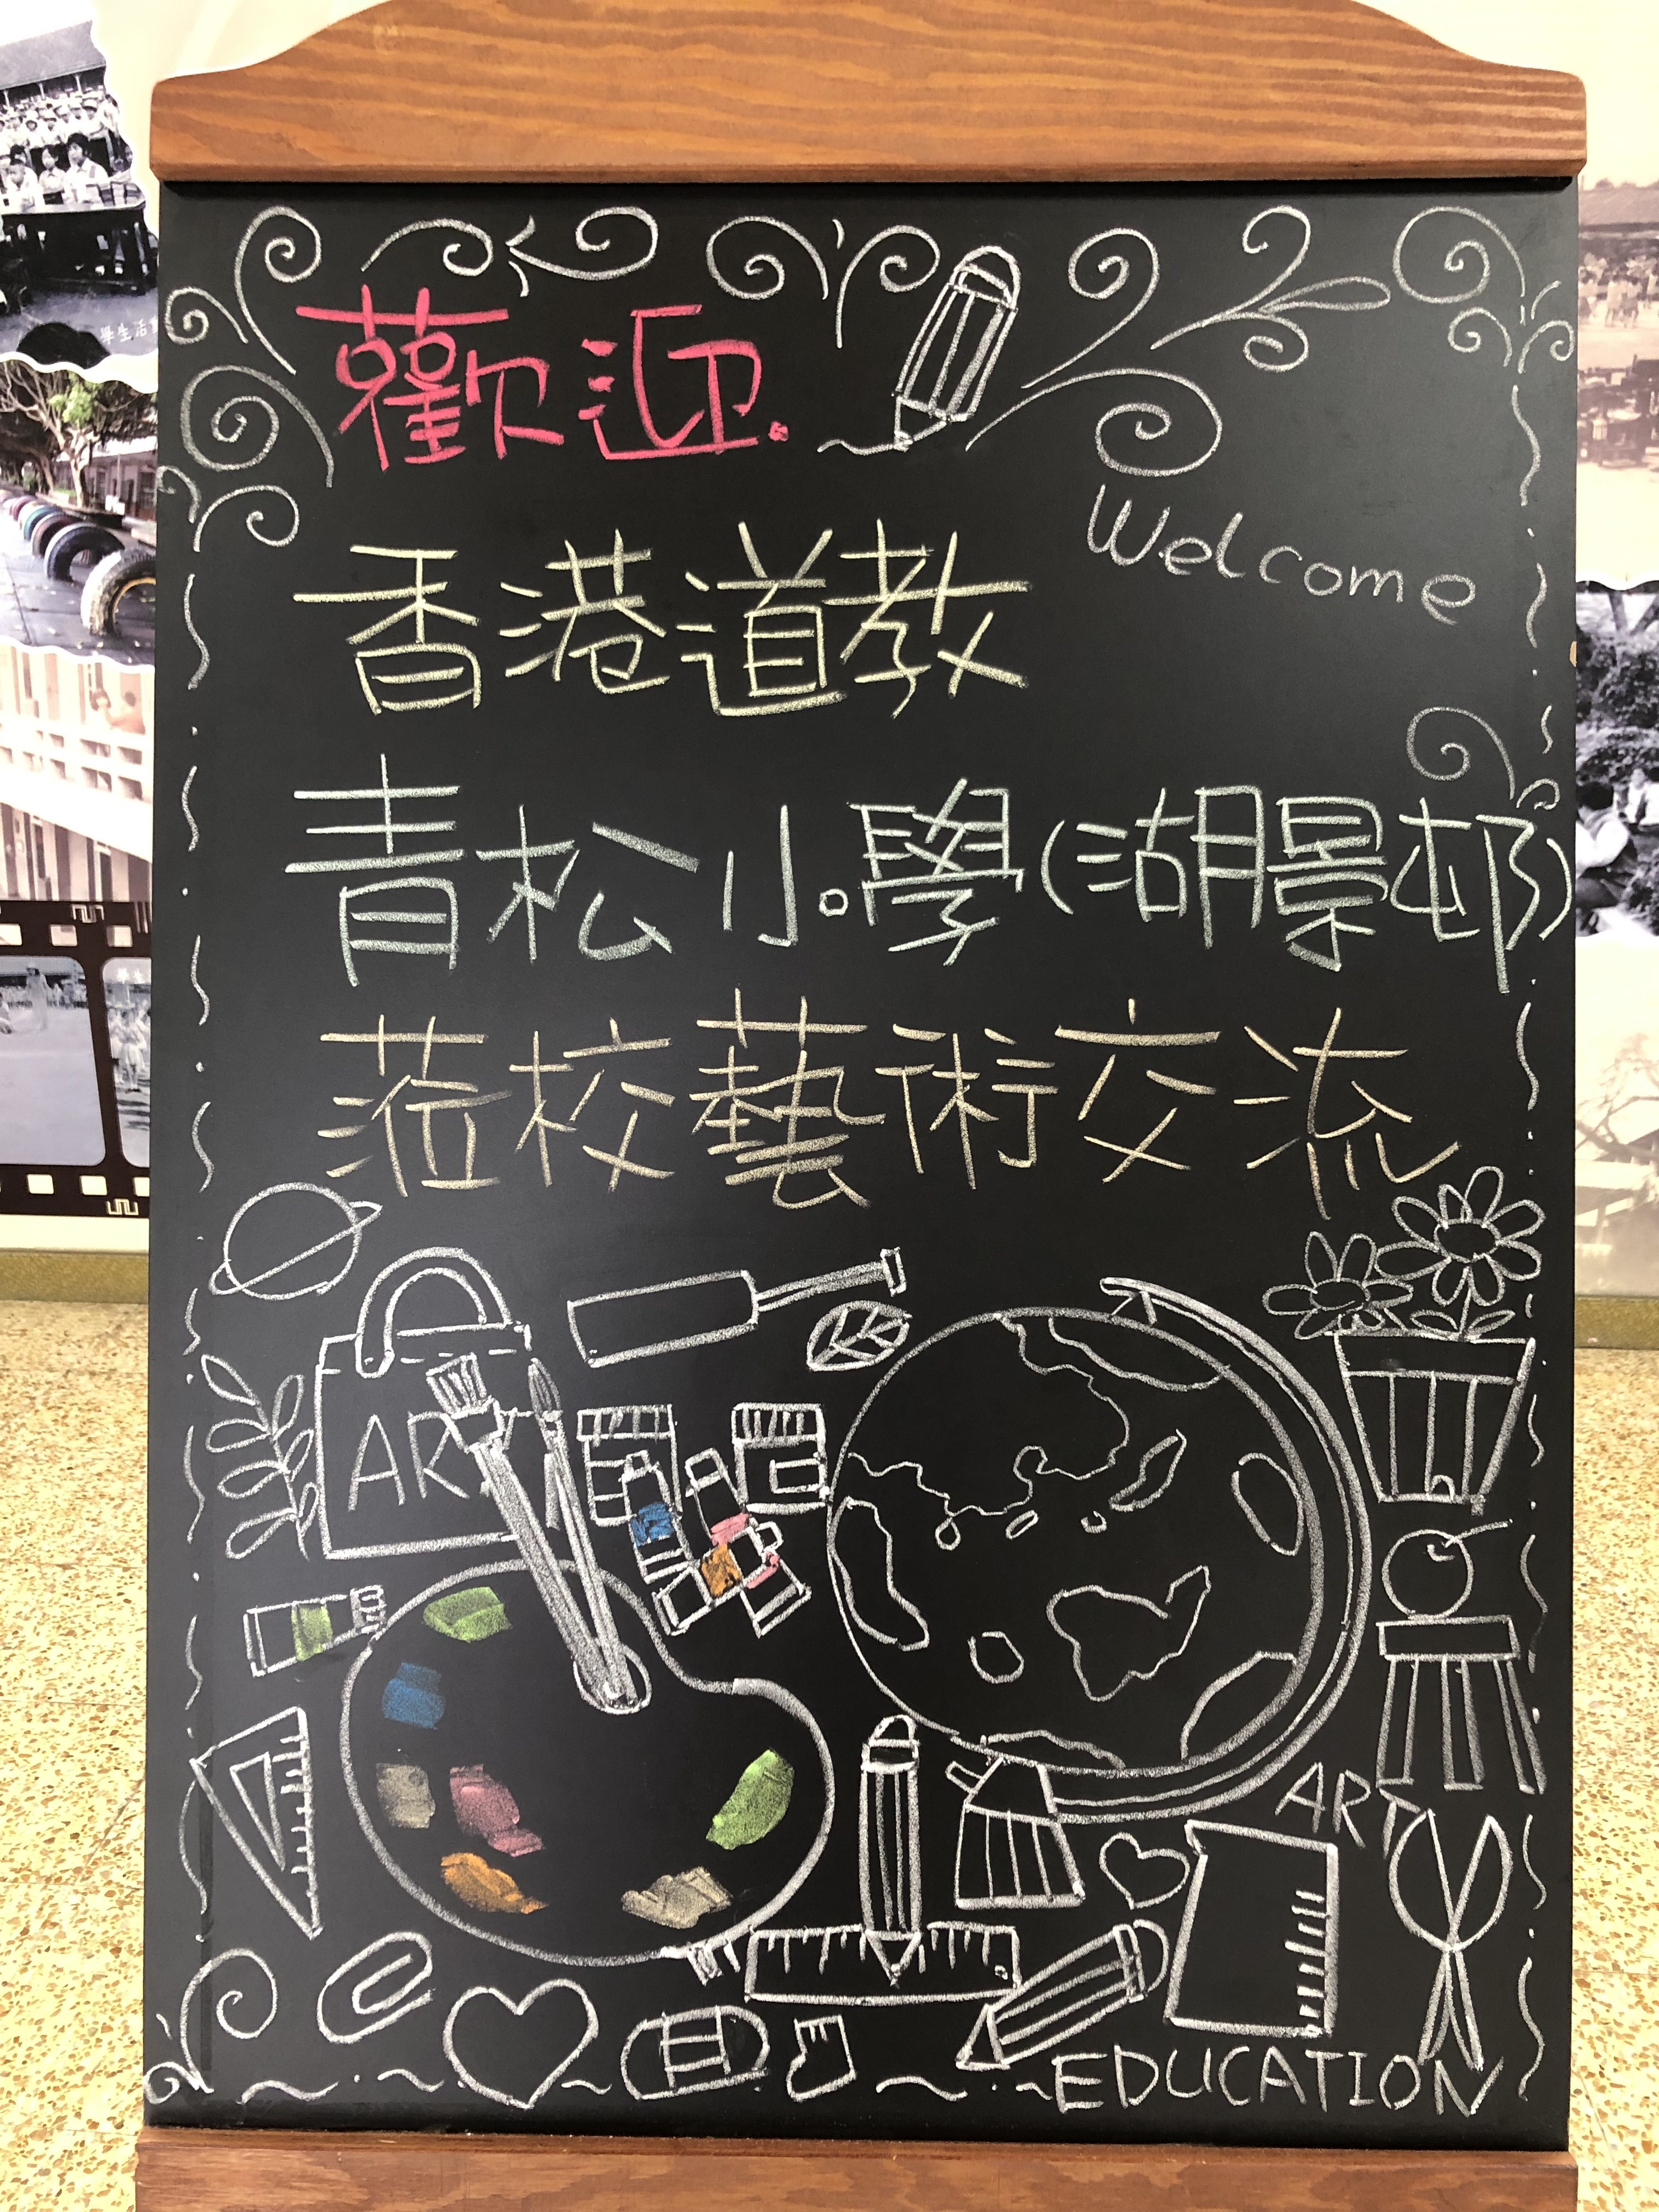 學生活
歡迎.
Welcome
香港道教
青松小學(湖景邨)
蒞校藝術交流
ART
ART
EDUCATION